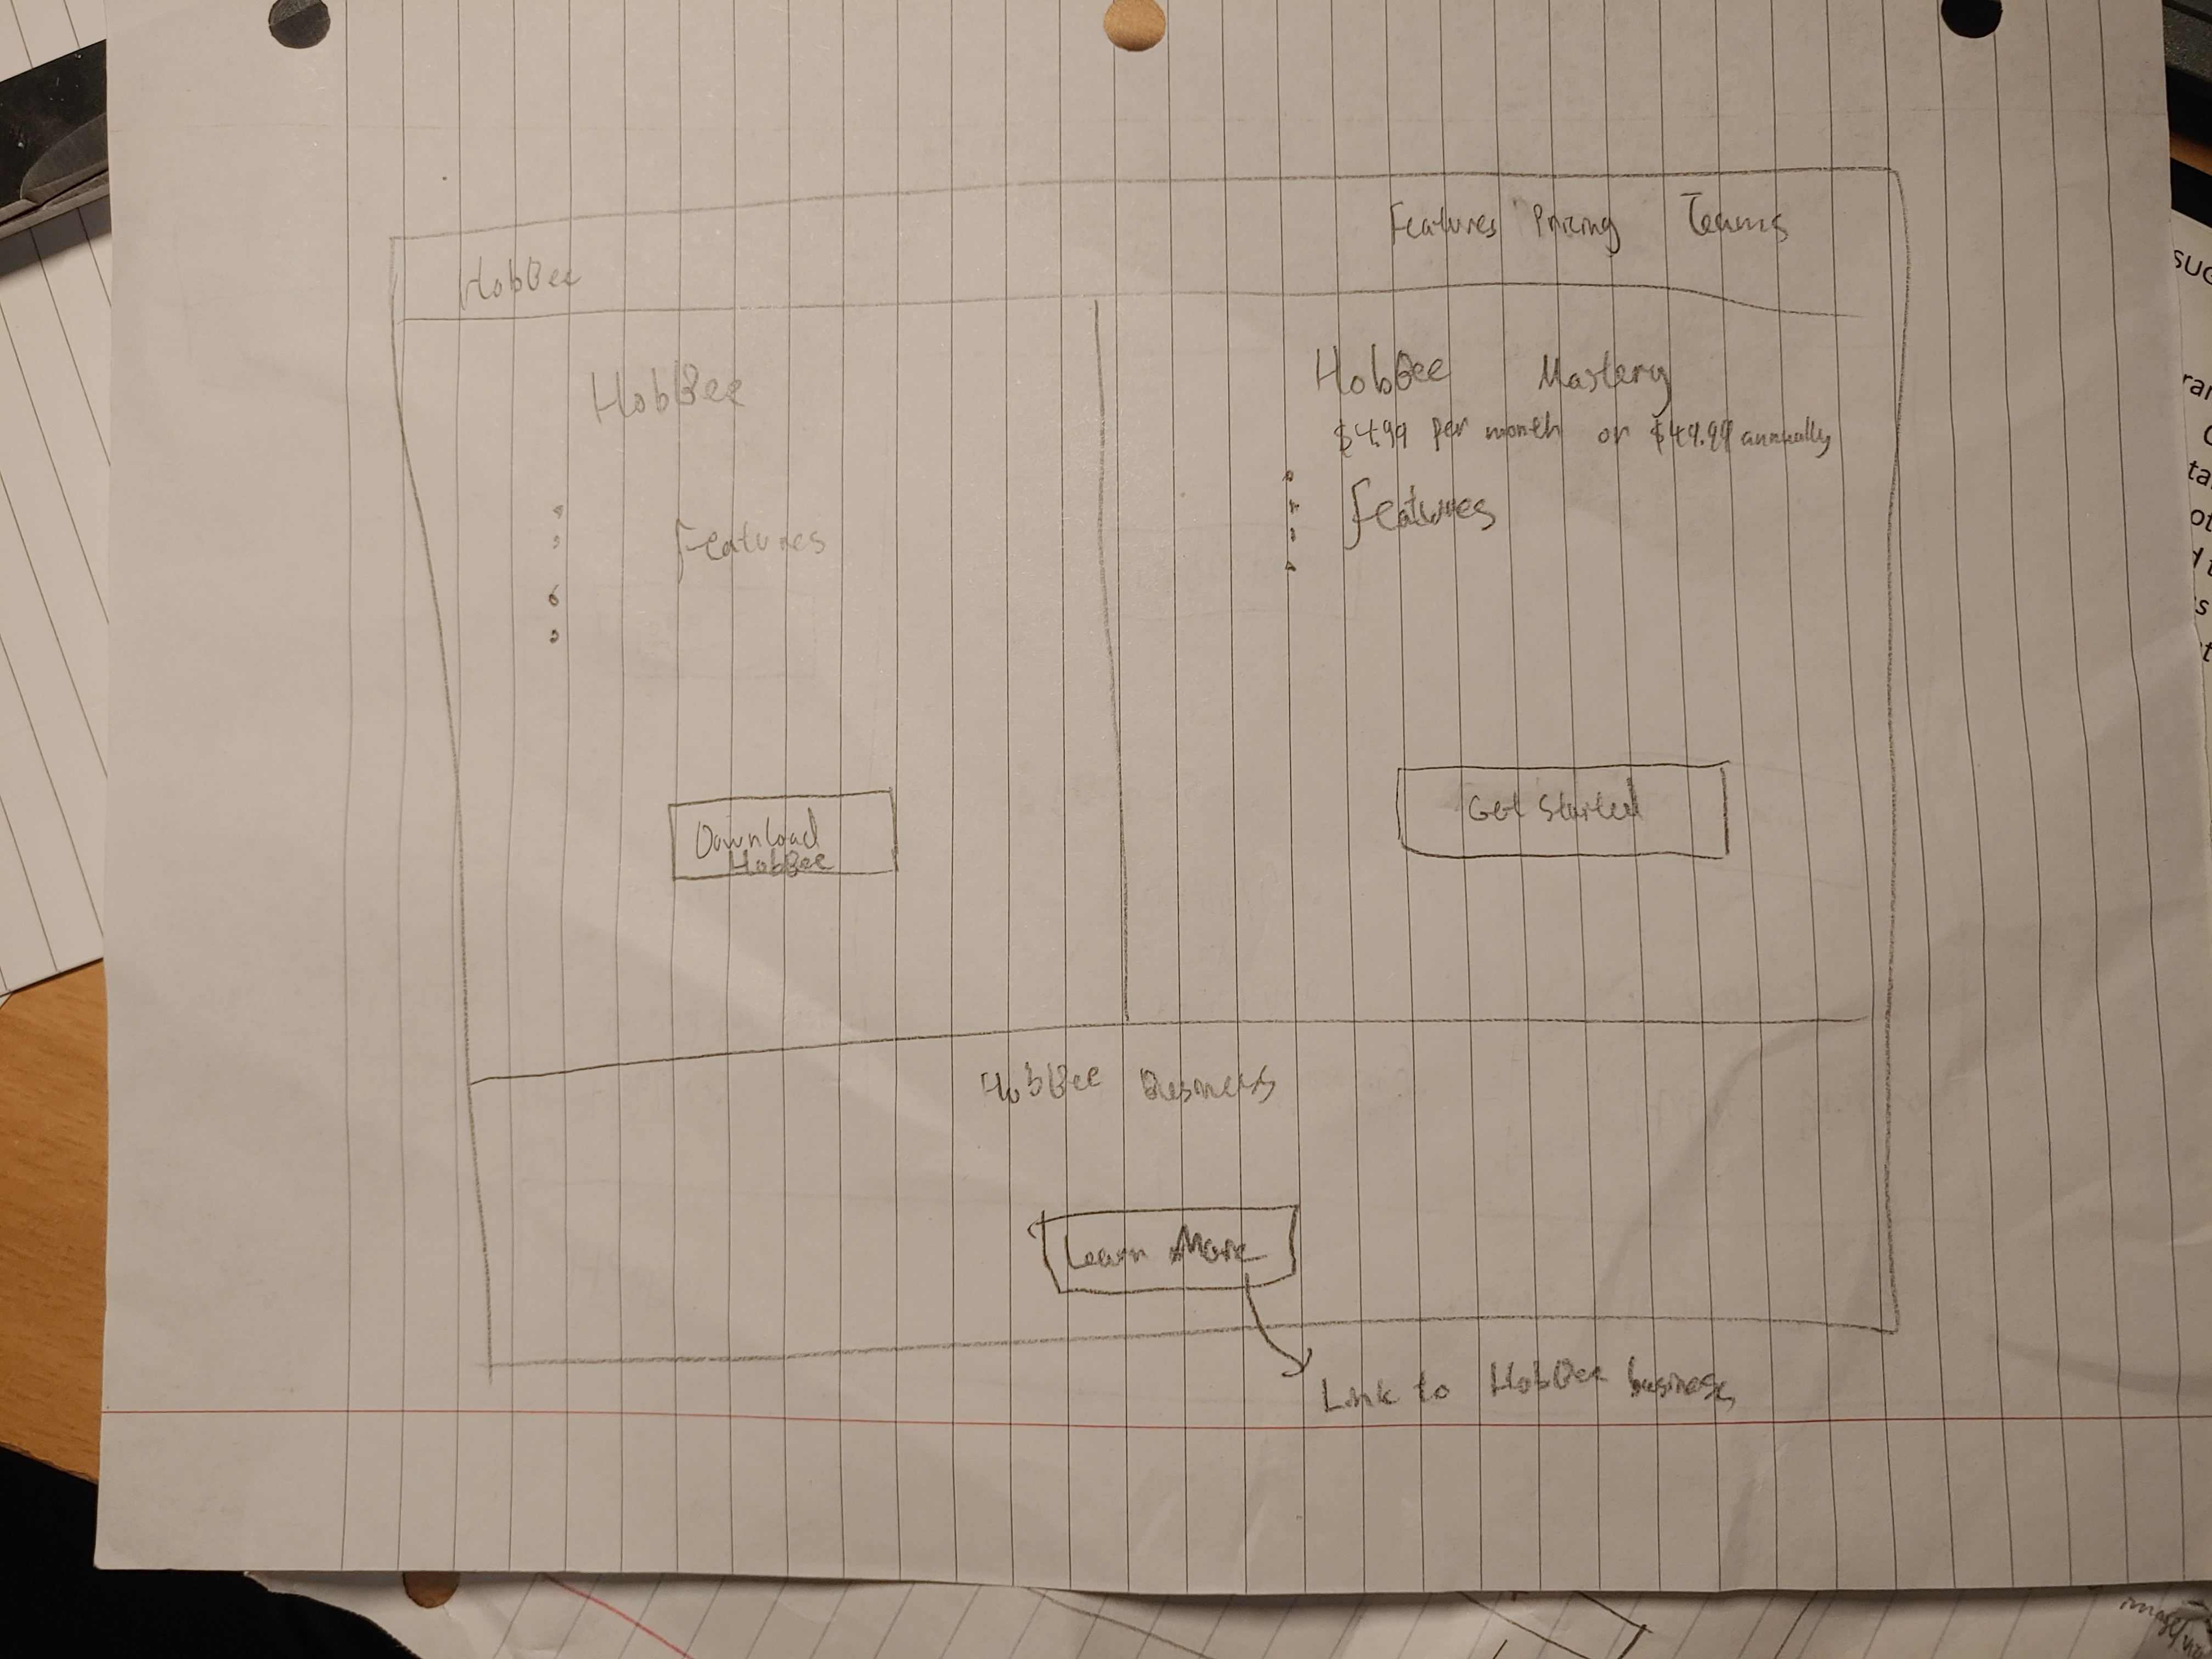 HobBee
Features Pricing Teams
HobBee
Features
Download
HobBee
HobBee Mastery
$4.99 per month or $49.99 annually
Features
Get Started
HobBee Business
Learn More
Link to HobBee business